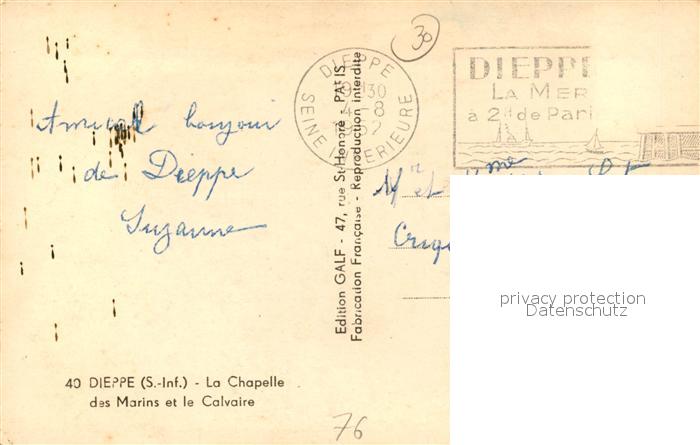 30
DIEPPE
SEINE INFERIEURE
DIEPPE
LA MER
à 2h de Pari
Amical bonjour
de Dieppe
Suzanne
Mr et Mme
Edition GALF - 47, rue St-Honoré - PARIS
Fabrication Française - Reproduction interdite
privacy protection
Datenschutz
40 DIEPPE (S.-Inf.) - La Chapelle
des Marins et le Calvaire
76